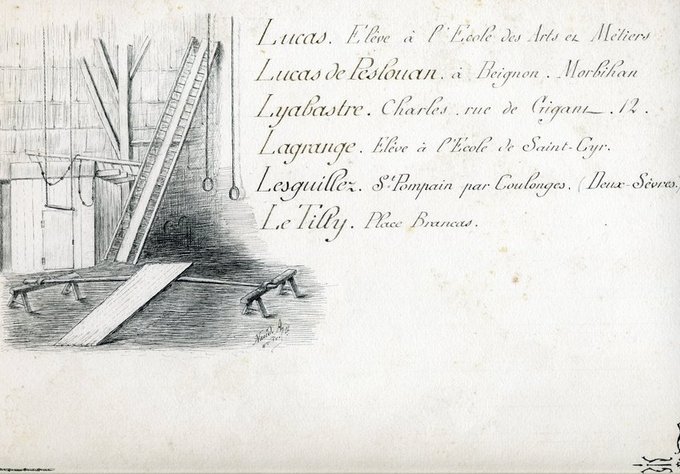 Lucas. Elève à l'Ecole des Arts et Métiers
Lucas de Peslouan. à Beignon. Morbihan
Lyabastre. Charles. rue de Gigant. 12.
Lagrange. Elève à l'Ecole de Saint-Cyr.
Lesguillez. St Pompain par Coulonges. (Deux-Sèvres.
Le Tilly. Place Brancas.